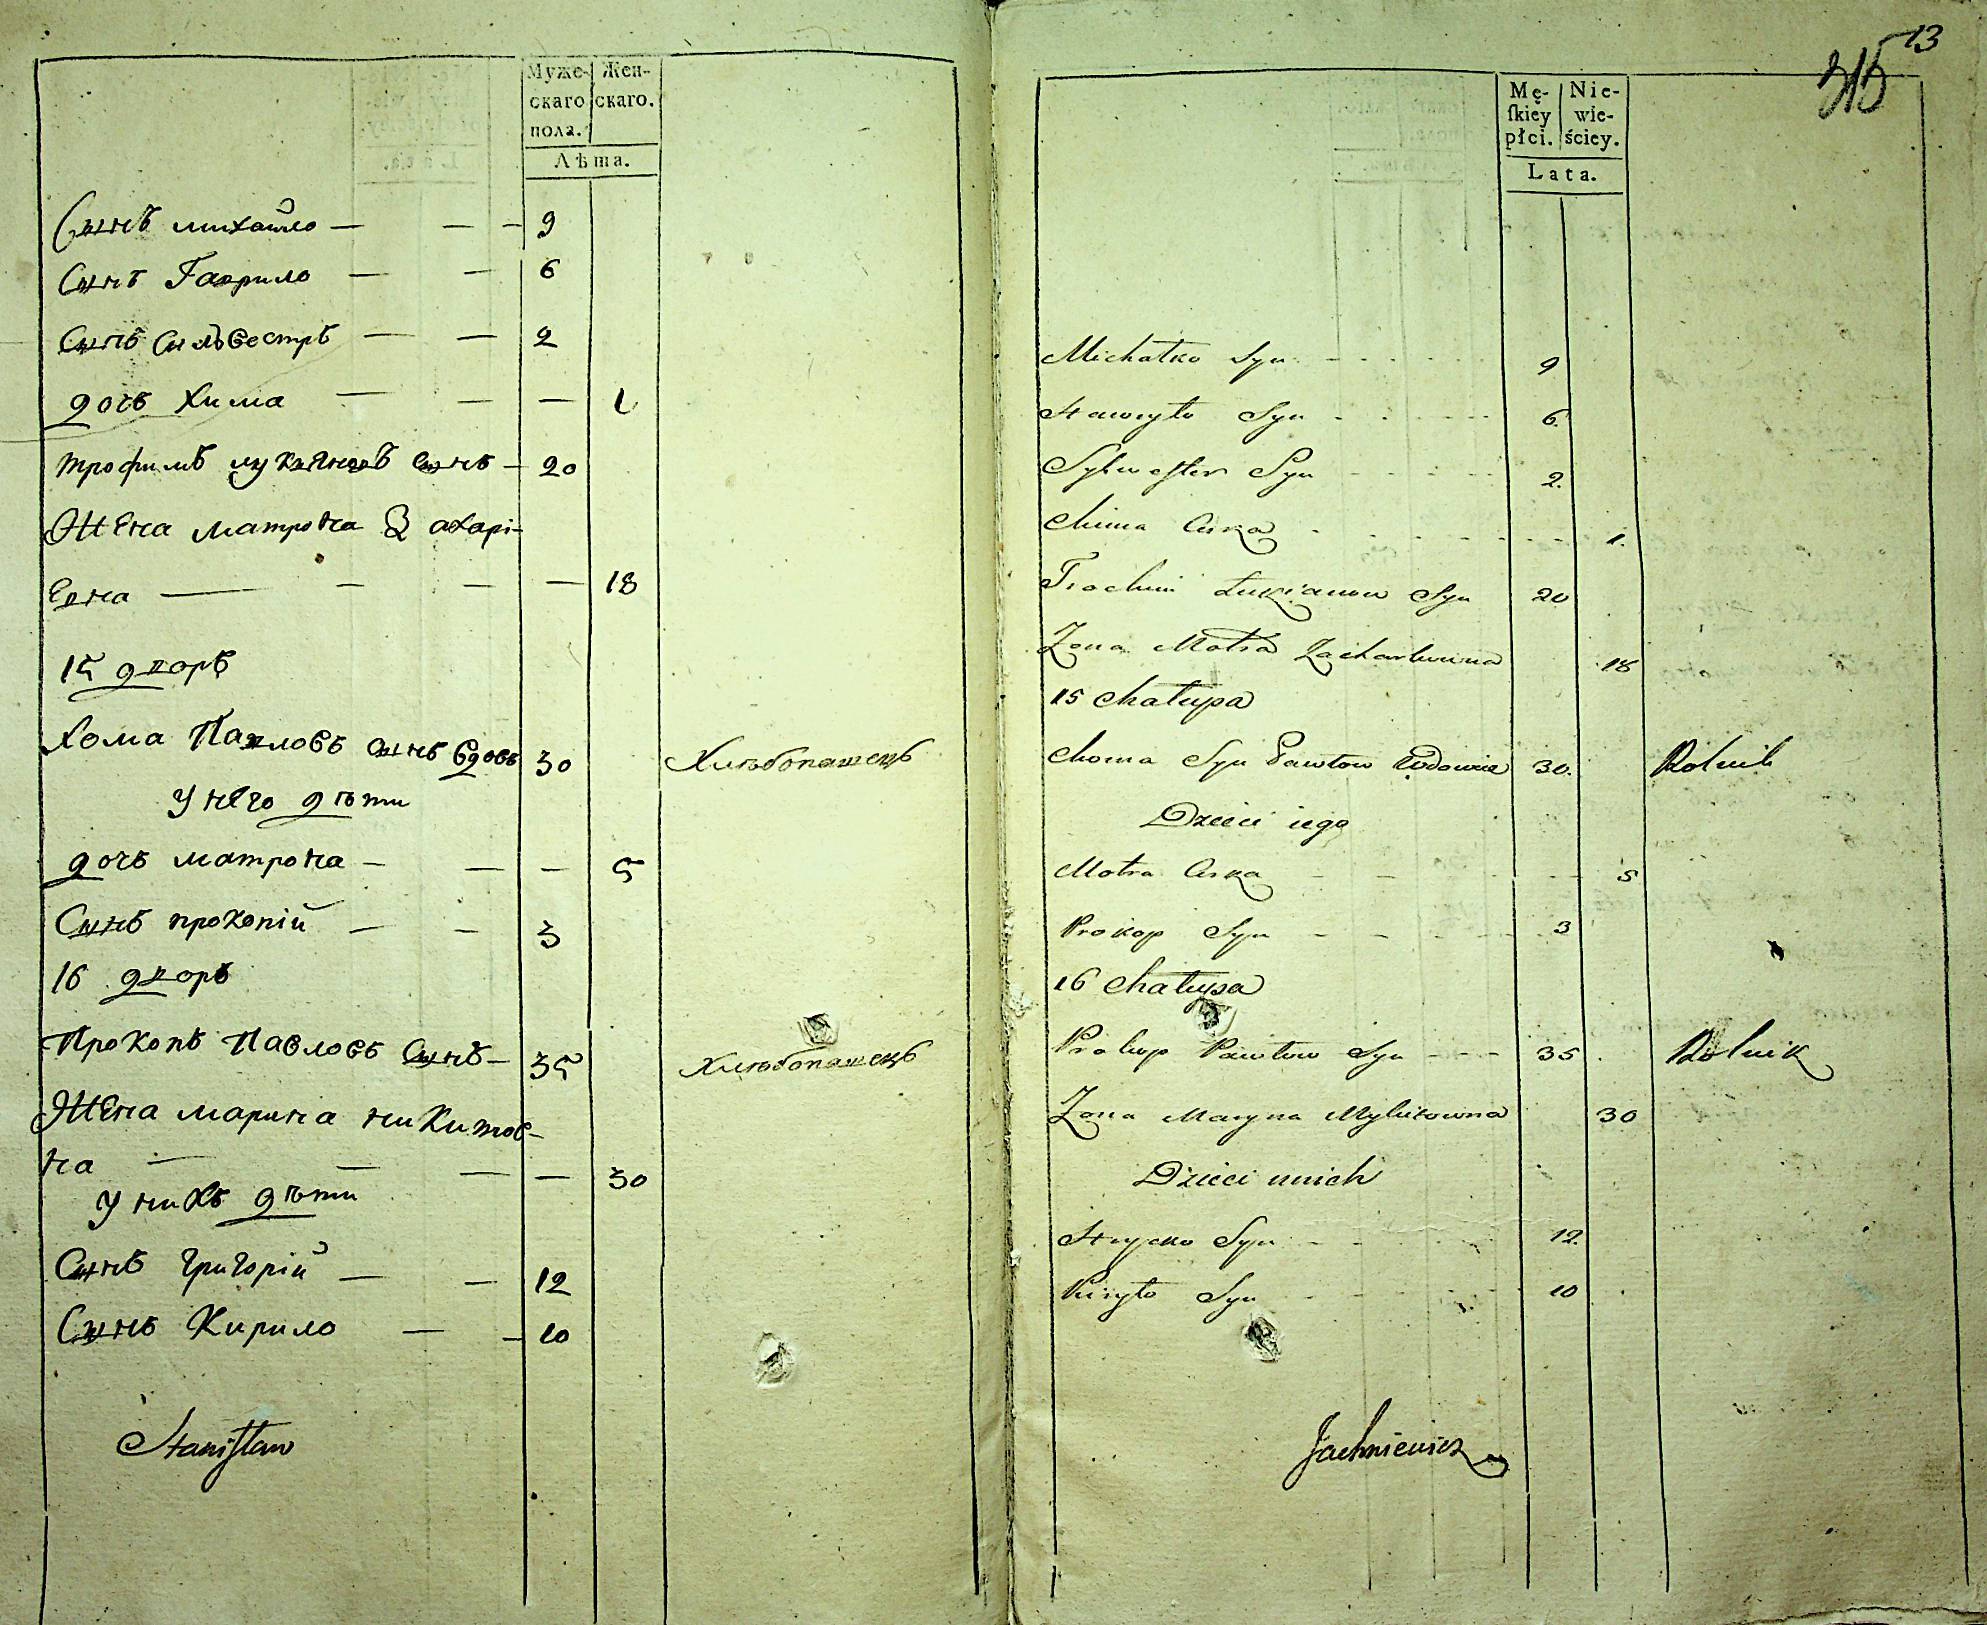 Муже-
скаго
пола.
Жен-
скаго.
Лѣта.
Сынъ михайло — — — 9
Сынъ Гаврило — — 6
Сынъ Сильвестръ — — 2
дочь Хима — — — 1
трофимъ лукяновъ сынъ — 20
Жена матрона Захарі-
евна — — — — 18
15 дворъ
Хома Павловъ сынъ вдовъ 30 Хлѣбопашецъ
У него дѣти
дочь матрона — — — 5
Сынъ прокопій — — 3
16 дворъ
Прокопъ Павловъ Сынъ — 35 Хлѣбопашецъ
Жена марина никитов-
на — — — — 30
У нихъ дѣти
Сынъ григорій — — 12
Сынъ Кирило — — 10
Stanisław
13
315
Mę-
ſkiey
płci.
Nie-
wie-
ściey.
Lata.
Michałko Syn 9
Hawryło Syn 6.
Sylwester Syn 2.
Chima Curka 1.
Trochim Łukianow Syn 20
Zona Motra Zacharowna 18
15 Chałupa
Choma Syn Pawłow Wdowiec 30. Rolnik
Dzieci iego
Motra Curka 5
Prokop Syn 3
16 Chałupa
Prokop Pawłow Syn 35 Rolnik
Zona Maryna Mykitowna 30
Dzieci unich
Hryćko Syn 12.
Kiryło Syn 10
Jachniewicz